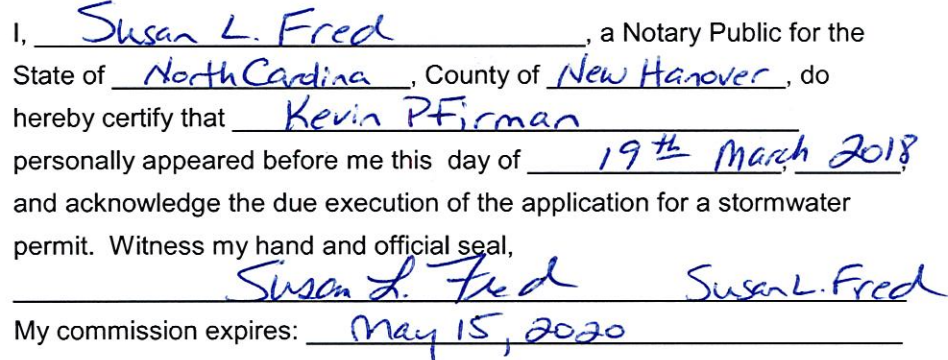 I, Susan L. Fred, a Notary Public for the
State of North Carolina, County of New Hanover, do
hereby certify that Kevin Pfirman
personally appeared before me this day of 19th March, 2018,
and acknowledge the due execution of the application for a stormwater
permit. Witness my hand and official seal,
Susan L. Fred Susan L. Fred
My commission expires: May 15, 2020